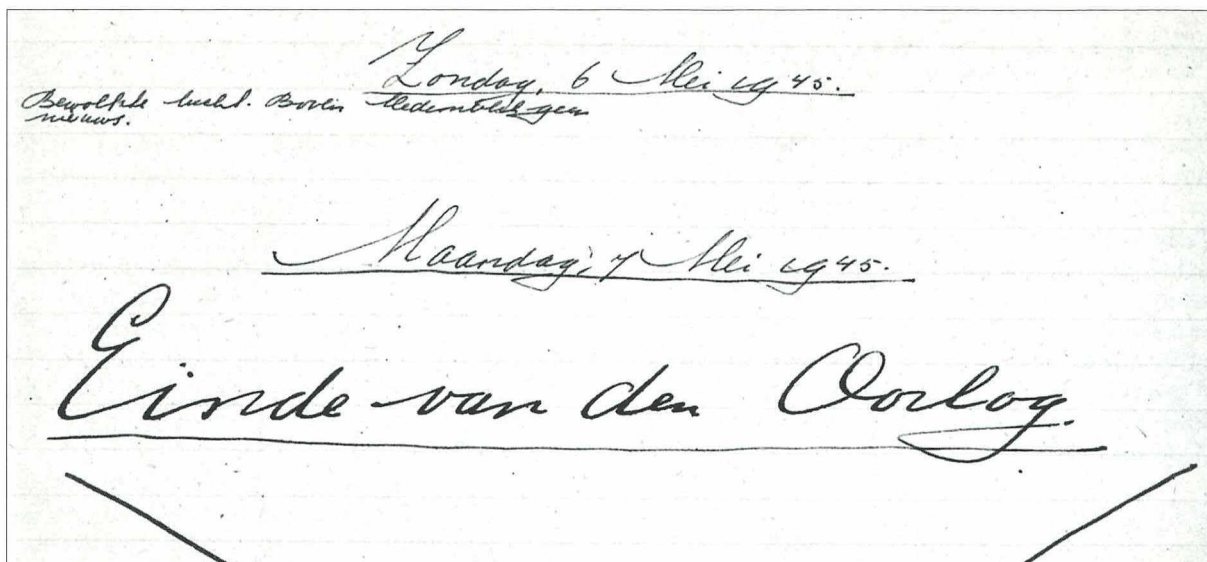 Zondag, 6 Mei 1945.
Bewolkte lucht. Boven Medemblik geen
nieuws.
Maandag, 7 Mei 1945.
Einde van den Oorlog.